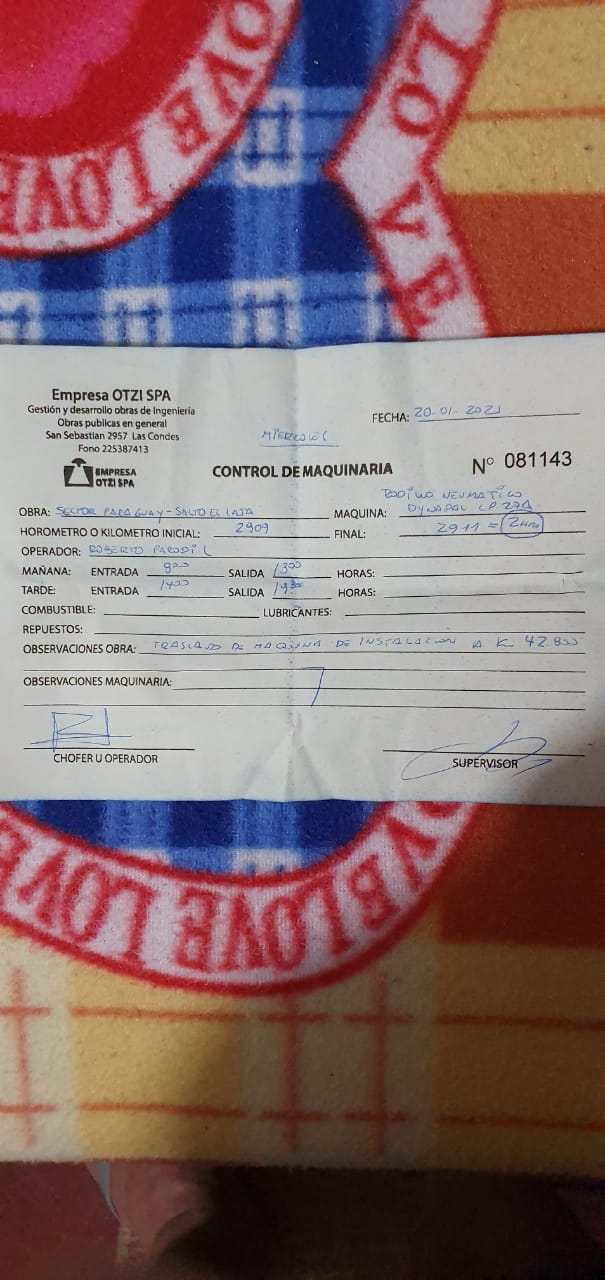 LOVE LOVE
LOVE
Empresa OTZI SPA
Gestión y desarrollo obras de Ingeniería
Obras publicas en general
San Sebastian 2957 Las Condes
Fono 225387413
EMPRESA
OTZI SPA
MIERCOLES
FECHA: 20-01-2021
CONTROL DE MAQUINARIA
N° 081143
OBRA: SECTOR PARAGUAY - SALTO EL LAJA
MAQUINA: RODILLO NEUMATICO
DYNAPAC CP.274
HOROMETRO O KILOMETRO INICIAL: 2909
FINAL: 2911 = 2HRS
OPERADOR: ROBERTO PARODI L
MAÑANA: ENTRADA 800 SALIDA 1300 HORAS:
TARDE: ENTRADA 1400 SALIDA HORAS:
COMBUSTIBLE: LUBRICANTES:
REPUESTOS:
OBSERVACIONES OBRA: TRASLADO DE MAQUINA DE INSTALACION A K 42.800
OBSERVACIONES MAQUINARIA:
CHOFER U OPERADOR
SUPERVISOR
LOVE LOVE LOVE